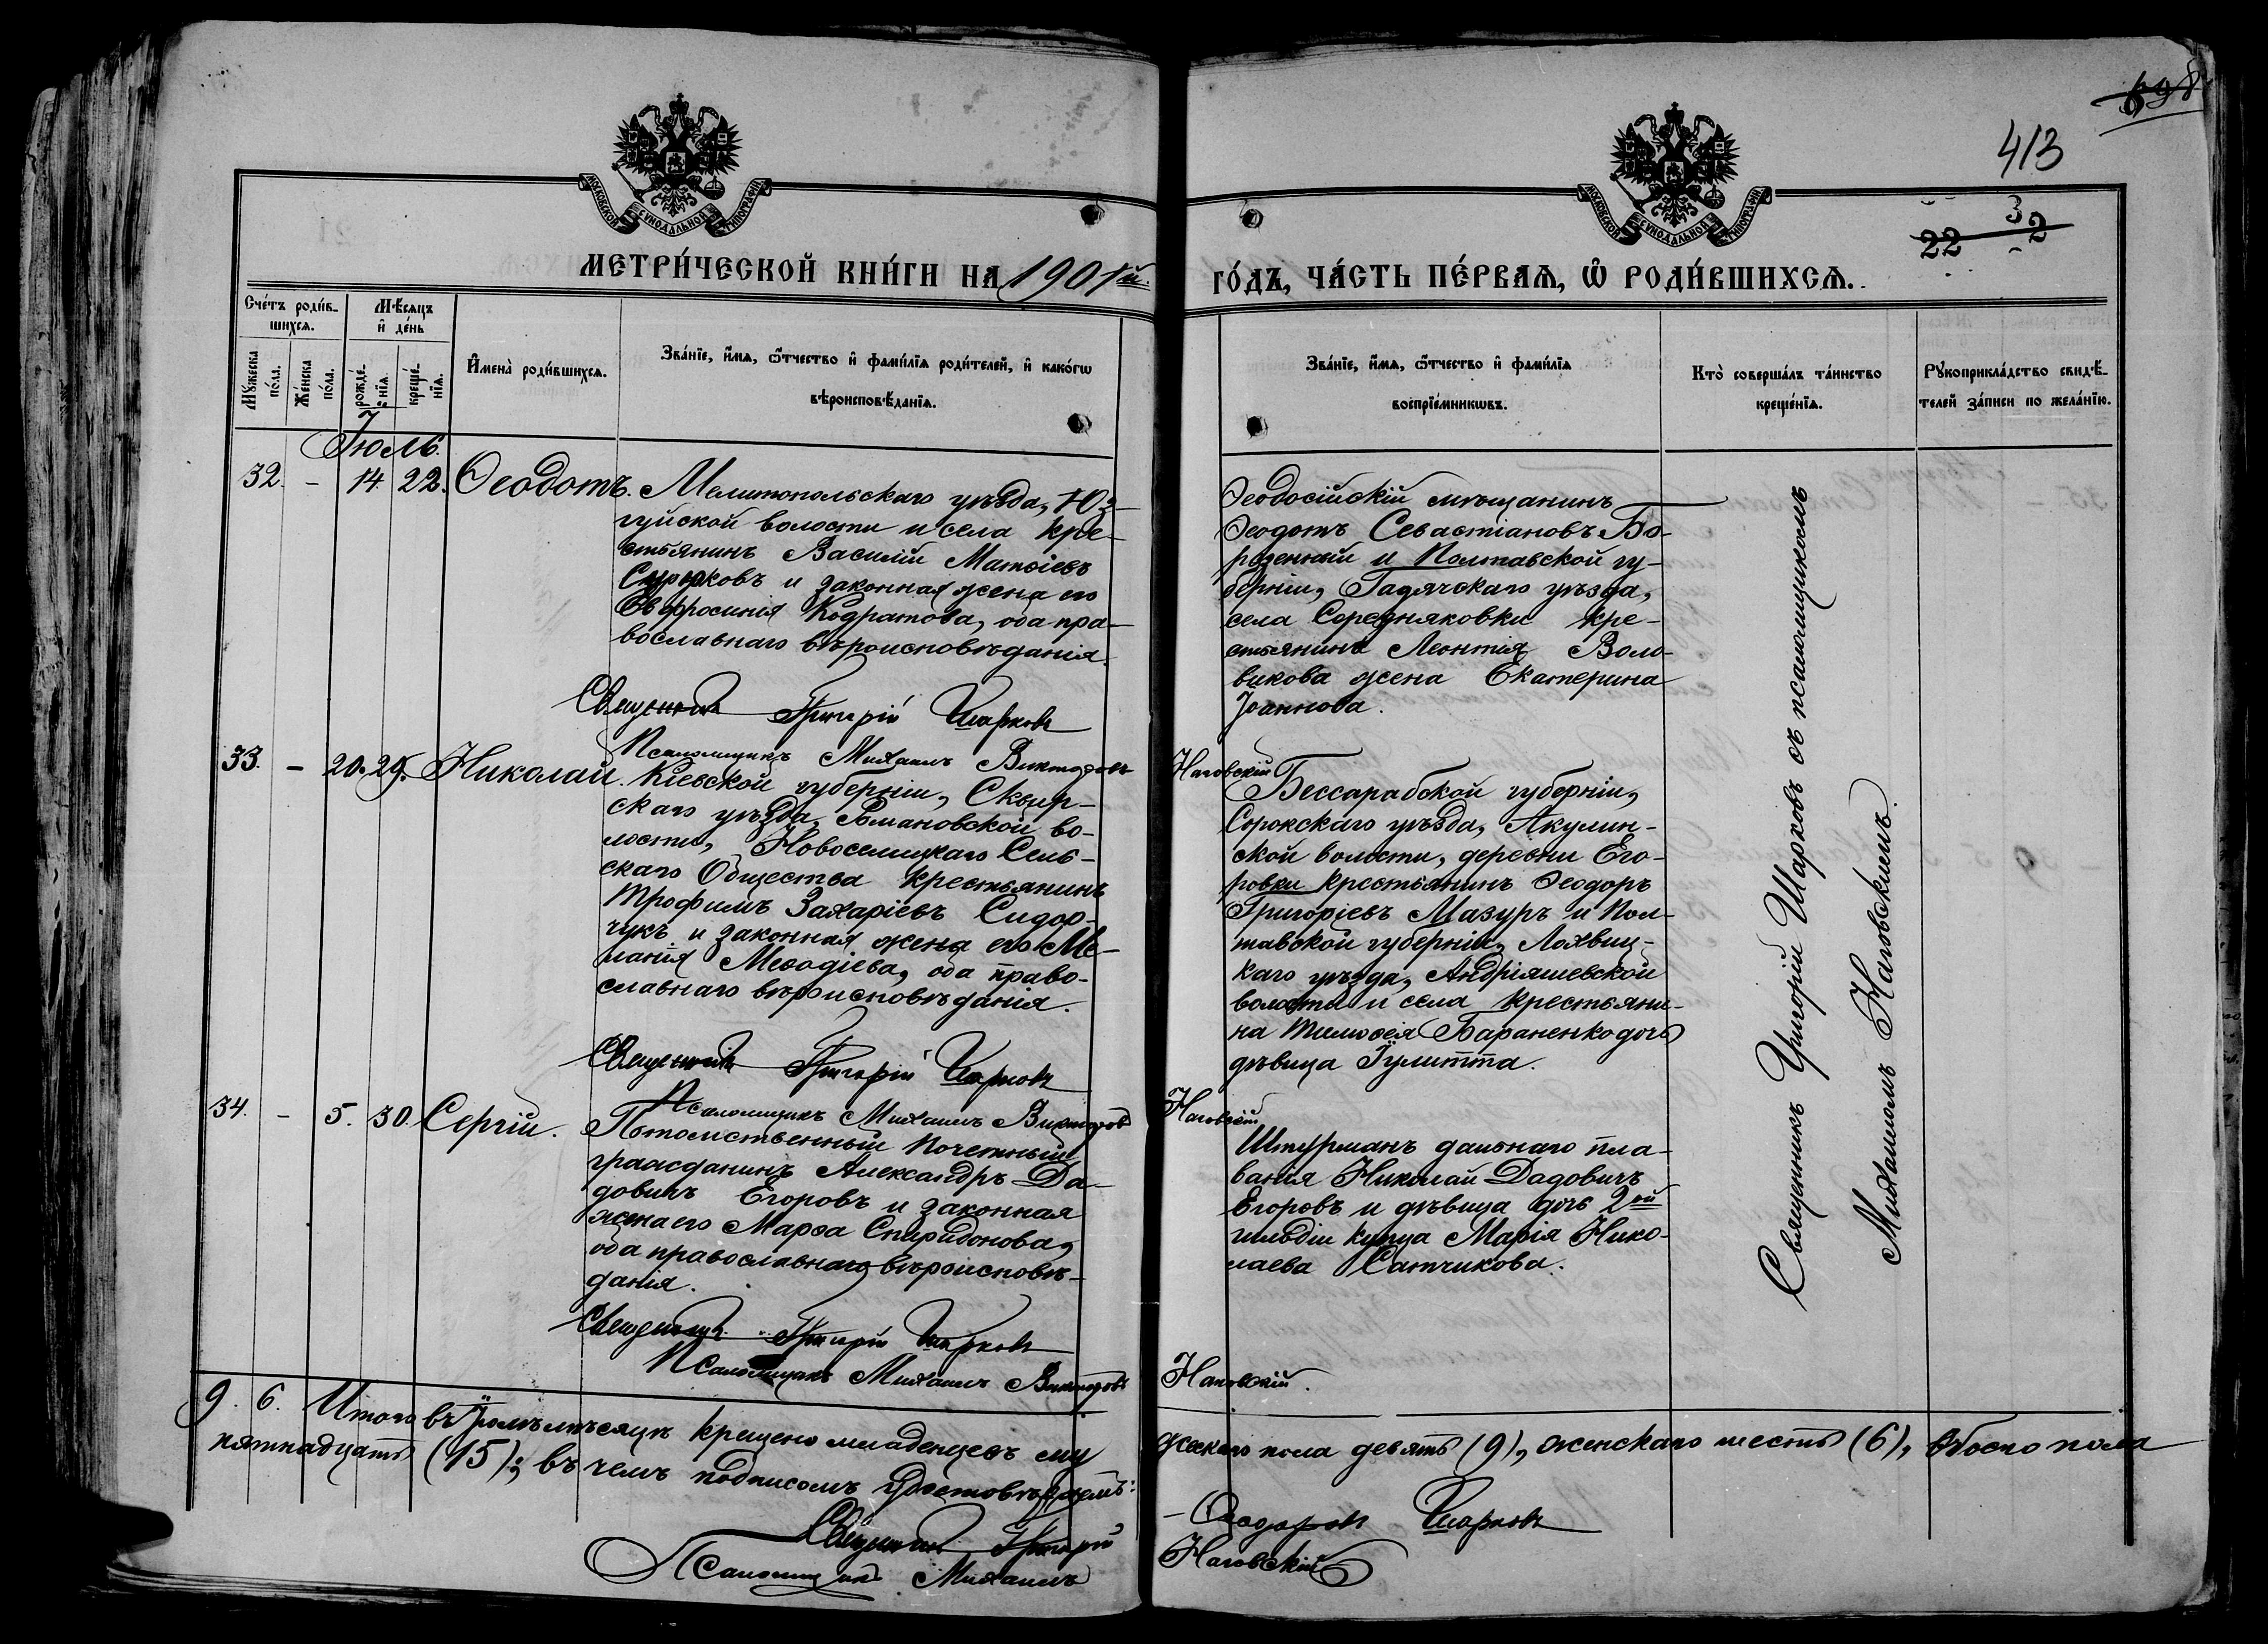 698
413
МОСКОВСКОЙ СѴНОДАЛЬНОЙ ТИПОГРАФІИ
МОСКОВСКОЙ СѴНОДАЛЬНОЙ ТИПОГРАФІИ
22 32
МЕТРИ́ЧЕСКОЙ КНИ́ГИ НА 1901й.
ГО́ДЪ, ЧА́СТЬ ПЕ́РВАѦ, Ѡ҆ РОДИ́ВШИХСѦ.
Сче́тъ роди́в-
шихсѧ.
Мѣ́сѧцъ
и҆ де́нь
Мꙋ́жеска
по́ла.
Же́нска
по́ла.
рожде́-
нїѧ.
креще́-
нїѧ.
И҆мена̀ роди́вшихсѧ.
Зва́нїе, и҆́мѧ, ѻ҆́тчество и҆ фами́лїѧ роди́телей, и҆ како́гѡ
вѣроисповѣ́данїѧ.
Зва́нїе, и҆́мѧ, ѻ҆́тчество и҆ фами́лїѧ
воспрїе́мникѡвъ.
Кто̀ соверша́лъ та́инство
креще́нїѧ.
Рꙋкоприкла́дство свидѣ́-
телей за́писи по жела́нїю.
Іюль.
32. - 14. 22. Ѳеодотъ.
Мелитопольскаго уѣзда, Юз-
гуйской волости и села кре-
стьянинъ Василій Матѳіевъ
и законная жена его
Евфросинія Кодратова, оба пра-
вославнаго вѣроисповѣданія.
Священникъ Григорій Шарковъ
Псаломщикъ Михаилъ Викторовъ
Ѳеодосійскій мѣщанинъ
Ѳеодотъ Севастіановъ Бо-
розенный и Полтавской гу-
берніи, Гадячскаго уѣзда,
села Середняковки кре-
стьянина Леонтія Воло-
викова жена Екатерина
Іоаннова.
Наговскій
33. - 20. 29. Николай.
Кіевской губерніи, Сквир-
скаго уѣзда, Романовской во-
лости, Новоселицкаго Сель-
скаго Общества крестьянинъ
Трофимъ Захаріевъ Сидор-
чукъ и законная жена его Ме-
ланія Меѳодіева, оба право-
славнаго вѣроисповѣданія.
Священникъ Григорій Шарковъ
Псаломщикъ Михаилъ Викторовъ
Бессарабской губерніи,
Сорокскаго уѣзда, Акулин-
ской волости, деревни Его-
ровки крестьянинъ Ѳеодоръ
Григоріевъ Мазуръ и Пол-
тавской губерніи, Лохвиц-
каго уѣзда, Андріяшевской
волости и села крестьяни-
на Тимоѳея Бараненко дочь
дѣвица Іулитта.
Наговскій
34. - 5. 30. Сергій.
Потомственный почетный
гражданинъ Александръ Да-
довичъ Егоровъ и законная
жена его Марѳа Спиридонова,
оба православнаго вѣроисповѣ-
данія.
Священникъ Григорій Шарковъ
Псаломщикъ Михаилъ Викторовъ
Штурманъ дальнаго пла-
ванія Николай Дадовичъ
Егоровъ и дѣвица дочь 2ой
гильдіи купца Марія Нико-
лаева Сатчикова.
Наговскій.
Священникъ Григорій Шарковъ съ псаломщикомъ
Михаиломъ Наговскимъ.
9. 6. Итого въ Іюлѣ мѣсяцѣ крещено младенцевъ му
жескаго пола девять (9), женскаго шесть (6), обоего пола
пятнадцать (15); въ чемъ подписомъ удостовѣряемъ:
Священникъ Григорій - Ѳеодоровъ Шарковъ
Псаломщикъ Михаилъ Наговскій